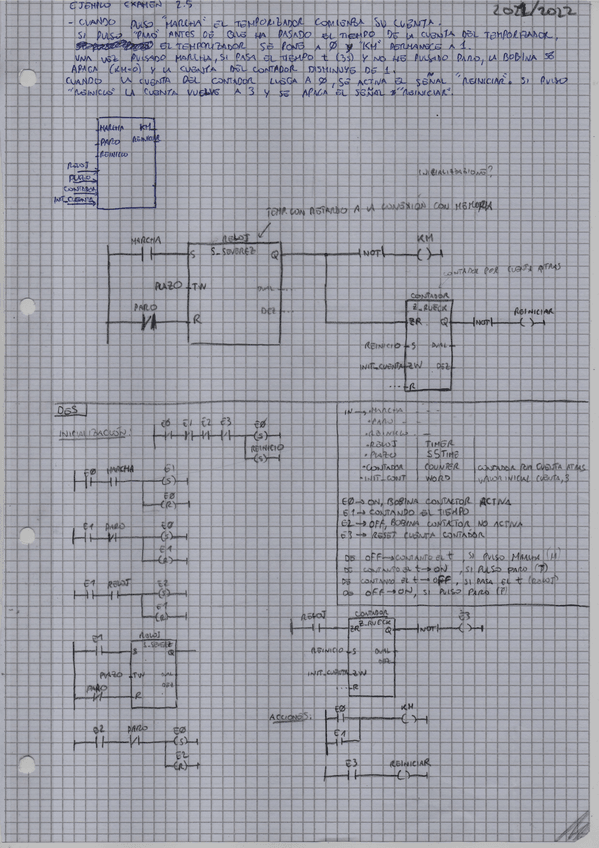 EJEMPLO EXAMEN 2.5
2021/2022
- CUANDO PULSO "MARCHA" EL TEMPORIZADOR COMIENZA SU CUENTA.
SI PULSO "PARO" ANTES DE QUE HA PASADO EL TIEMPO DE LA CUENTA DEL TEMPORIZADOR,
EL TEMPORIZADOR SE PONE A 0 Y "KM" PERMANCE A 1.
UNA VEZ PULSADO MARCHA, SI PASA EL TIEMPO t (3s) Y NO HE PULSADO PARO, LA BOBINA SE
APAGA (KM=0) Y LA CUENTA DEL CONTADOR DISMINUYE DE 1.
CUANDO LA CUENTA DEL CONTADOR LLEGA A 0, SE ACTIVA EL SEÑAL "REINICIAR". SI PULSO
"REINICIO" LA CUENTA VUELVE A 3 Y SE APAGA EL SEÑAL "REINICIAR".
MARCHA KM
PARO REINICIAR
REINICIO
RELOJ
PLAZO
CONTADOR
INIT_CUENTA
INICIALIZACIONE?
TEMP. CON RETARDO A LA CONEXIÓN CON MEMORIA
MARCHA
RELOJ
S_SEVERZ
S Q
NOT
KM
PLAZO TW
DUAL ...
DEZ ...
PARO
R
CONTADOR POR CUENTA ATRAS
CONTADOR
Z_RUECK
ZR Q
NOT
REINICIAR
REINICIO S DUAL
INIT_CUENTA ZW DEZ
... R
DES
INICIALIZACIÓN:
E0 E1 E2 E3 E0
(S)
REINICIO
(S)
E0 MARCHA E1
(S)
E0
(R)
E1 PARO E0
(S)
E1
(R)
E1 RELOJ E2
(S)
E1
(R)
E1
RELOJ
S_SEVERZ
S Q
PLAZO TW DUAL
DEZ
PARO
R
E2 PARO E0
(S)
E2
(R)
IN → • MARCHA
• PARO
• REINICIO
• RELOJ TIMER
• PLAZO S5TIME
• CONTADOR COUNTER CONTADOR POR CUENTA ATRAS
• INIT_CONT WORD VALOR INICIAL CUENTA, 3
E0 → ON, BOBINA CONTACTOR ACTIVA
E1 → CONTANDO EL TIEMPO
E2 → OFF, BOBINA CONTACTOR NO ACTIVA
E3 → RESET CUENTA CONTADOR
DE OFF → CONTANDO EL t, SI PULSO MARCHA (M)
DE CONTANDO EL t → ON, SI PULSO PARO (P)
DE CONTANDO EL t → OFF, SI PASA EL t (RELOJ)
DE OFF → ON, SI PULSO PARO (P)
RELOJ
CONTADOR
Z_RUECK
ZR Q
NOT
E3
REINICIO S DUAL
DEZ
INIT_CUENTA ZW
... R
ACCIONES:
E0 KM
E1
E3 REINICIAR